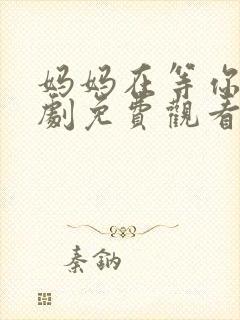 妈妈在等你
劇免費觀看
秦鈉